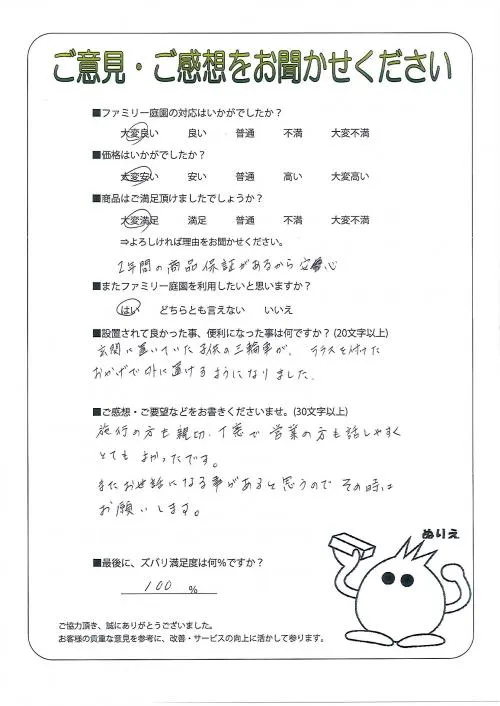 ご意見・ご感想をお聞かせください
■ファミリー庭園の対応はいかがでしたか？
大変良い 良い 普通 不満 大変不満
■価格はいかがでしたか？
大変安い 安い 普通 高い 大変高い
■商品はご満足頂けましたでしょうか？
大変満足 満足 普通 不満 大変不満
⇒よろしければ理由をお聞かせください。
2年間の商品保証があるから安心
■またファミリー庭園を利用したいと思いますか？
はい どちらとも言えない いいえ
■設置されて良かった事、便利になった事は何ですか？(20文字以上)
玄関に置いていた子供の三輪車が、テラスを付けた
おかげで外に置けるようになりました。
■ご感想・ご要望などをお書きくださいませ。(30文字以上)
施行の方も親切、丁寧で営業の方も話しやすく
とてもよかったです。
またお世話になる事があると思うのでその時は
お願いします。
ぬりえ
■最後に、ズバリ満足度は何%ですか？
100 %
ご協力頂き、誠にありがとうございました。
お客様の貴重な意見を参考に、改善・サービスの向上に活かして参ります。